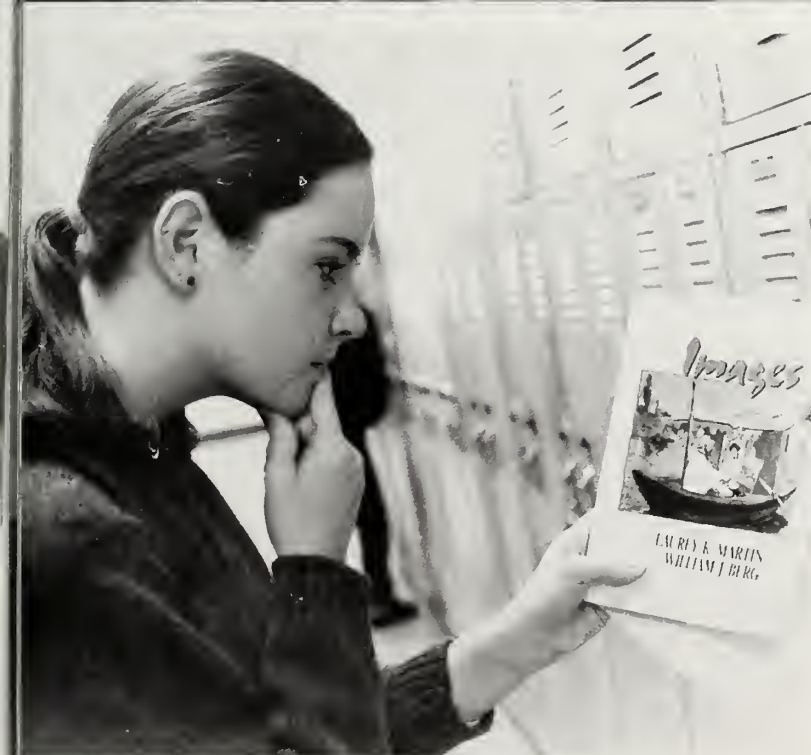 Images
LAUREY K. MARTIN
WILLIAM J. BERG